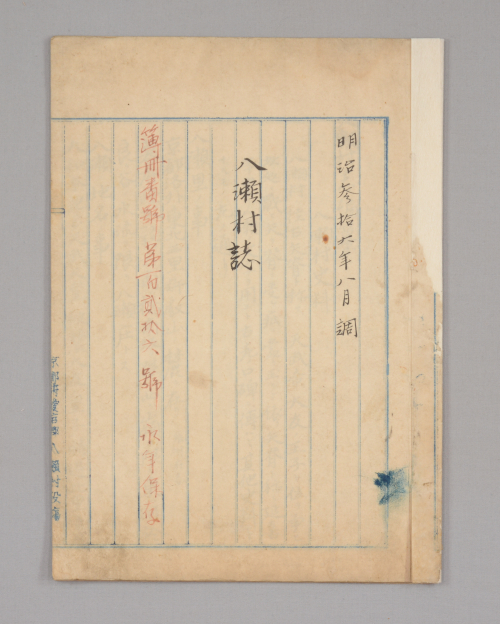 明治参拾六年八月調
八瀬村誌
簿冊番號 第百貳拾六號 永年保存
京都府愛宕郡八瀬村役場